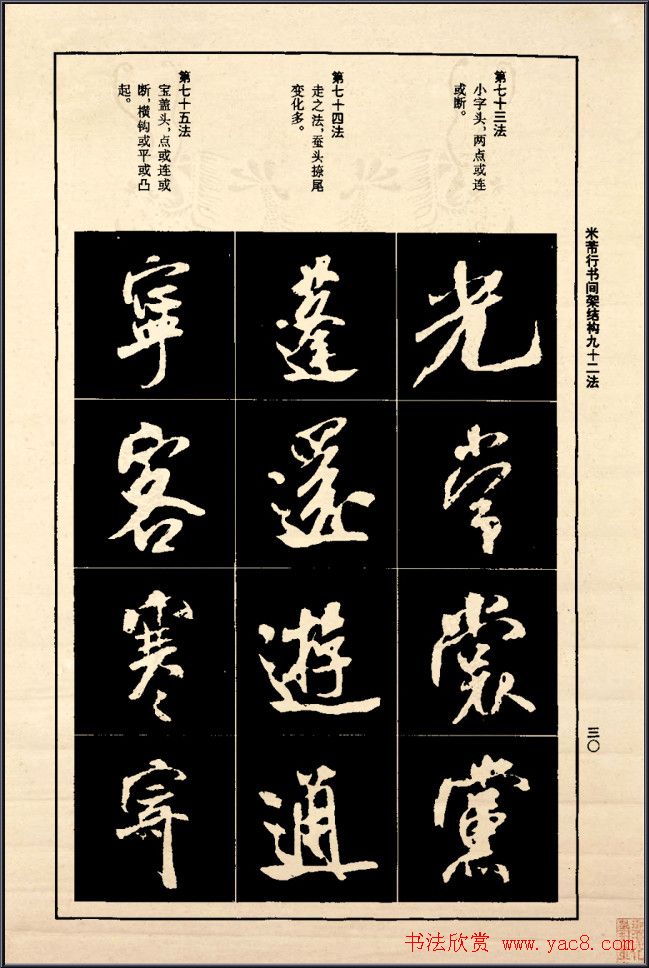 米芾行书间架结构九十二法
三〇
第七十三法
小字头，两点或连
或断。
第七十四法
走之法，蚕头捺尾
变化多。
第七十五法
宝盖头，点或连或
断，横钩或平或凸
起。
光常裳黨
蓬還遊通
寧客寒寄
书法欣赏 www.yac8.com